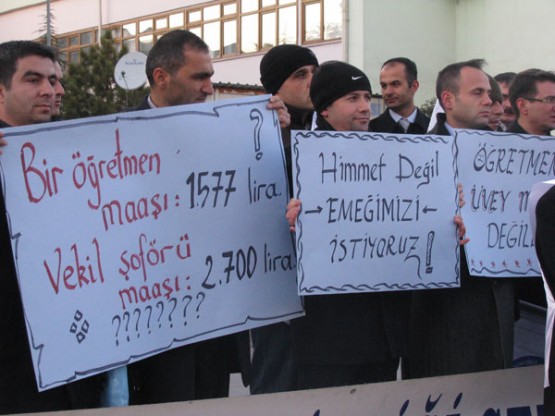 Bir öğretmen
maaşı : 1.577 lira.
?
Vekil şoförü
maaşı : 2.700 lira.
????????
Himmet Değil
→ EMEĞİMİZİ ←
İSTİYORUZ !
ÖĞRETMEN
ÜVEY
DEĞİL